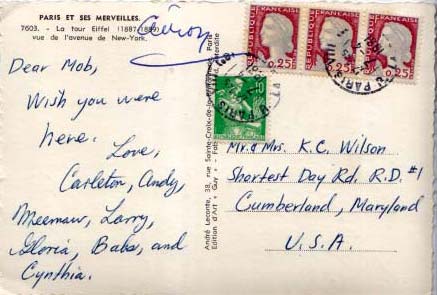 PARIS ET SES MERVEILLES.
7603. - La tour Eiffel (1887-1889)
vue de l'avenue de New-York.
Dear Mob,
Wish you were
here.
Love,
Carleton, Andy,
Meemaw, Larry,
Gloria, Babs, and
Cynthia.
André Leconte, 38, rue Sainte-Croix-de-la
Edition d'Art "Guy" - Fab
Paris
Interdite
REPUBLIQUE FRANÇAISE
0,25
REPUBLIQUE FRANÇAISE
0,25
REPUBLIQUE FRANÇAISE
0,25
PARIS
PARIS
Mr. & Mrs. K.C. Wilson
Shortest Day Rd. R.D. #1
Cumberland, Maryland
U.S.A.